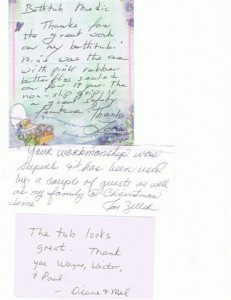 Bathtub Medic
Thanks for
the great work
on my bathtub.
Mine was the one
with pink rubber
butterflies sealed
on for 19 years. The
non-slip grip is
a great safety
feature. Thanks
"Your workmanship was
superb & has been used
by a couple of guests as well
as my family @ Christmas
time
The tub looks
great. Thank
you Wayne, Victor,
& Paul
- Diane & Mel